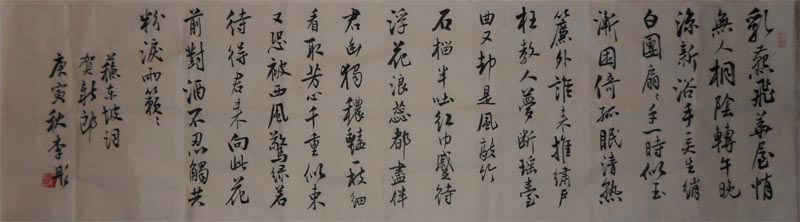 乳燕飛華屋悄
無人桐陰轉午晚
涼新浴手弄生綃
白團扇〻手一時似玉
漸困倚孤眠清熟
簾外誰來推繡户
枉教人夢斷瑶臺
曲又却是風敲竹
石榴半吐红巾蹙待
浮花浪蕊都盡伴
君幽獨穠豔一枝細
看取芳心千重似束
又恐被西風驚緑若
待得君來向此花
前對酒不忍觸共
粉淚兩簌〻
蘇東坡詞
賀新郎
庚寅秋李彤